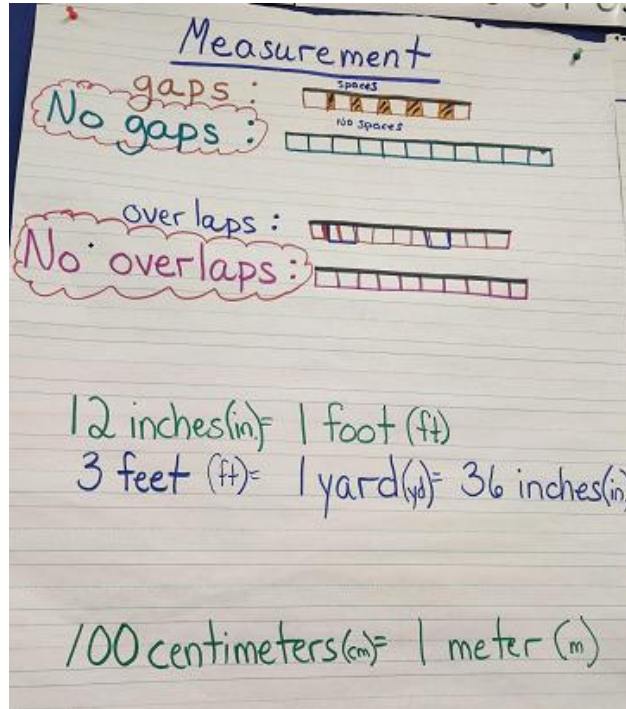 Measurement
gaps :
spaces
No gaps :
No spaces
overlaps :
No overlaps :
12 inches(in)= 1 foot (ft)
3 feet (ft)= 1 yard(yd)= 36 inches(in)
100 centimeters(cm)= 1 meter (m)